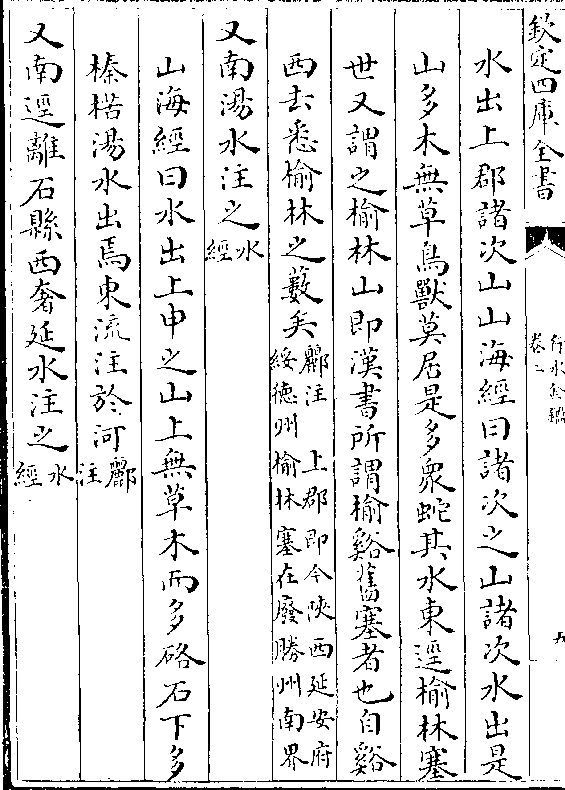 欽定四庫全書
行水金鑑
卷二
九
水出上郡諸次山山海經曰諸次之山諸次水出是
山多木無草鳥獸莫居是多衆蛇其水東逕榆林塞
世又謂之榆林山即漢書所謂榆谿舊塞者也自谿
西去悉榆林之藪矣酈注 上郡即今陝西延安府綏德州榆林塞在廢勝州南界
又南湯水注之水經
山海經曰水出上申之山上無草木而多硌石下多
榛楛湯水出焉東流注於河酈注
又南逕離石縣西奢延水注之水經